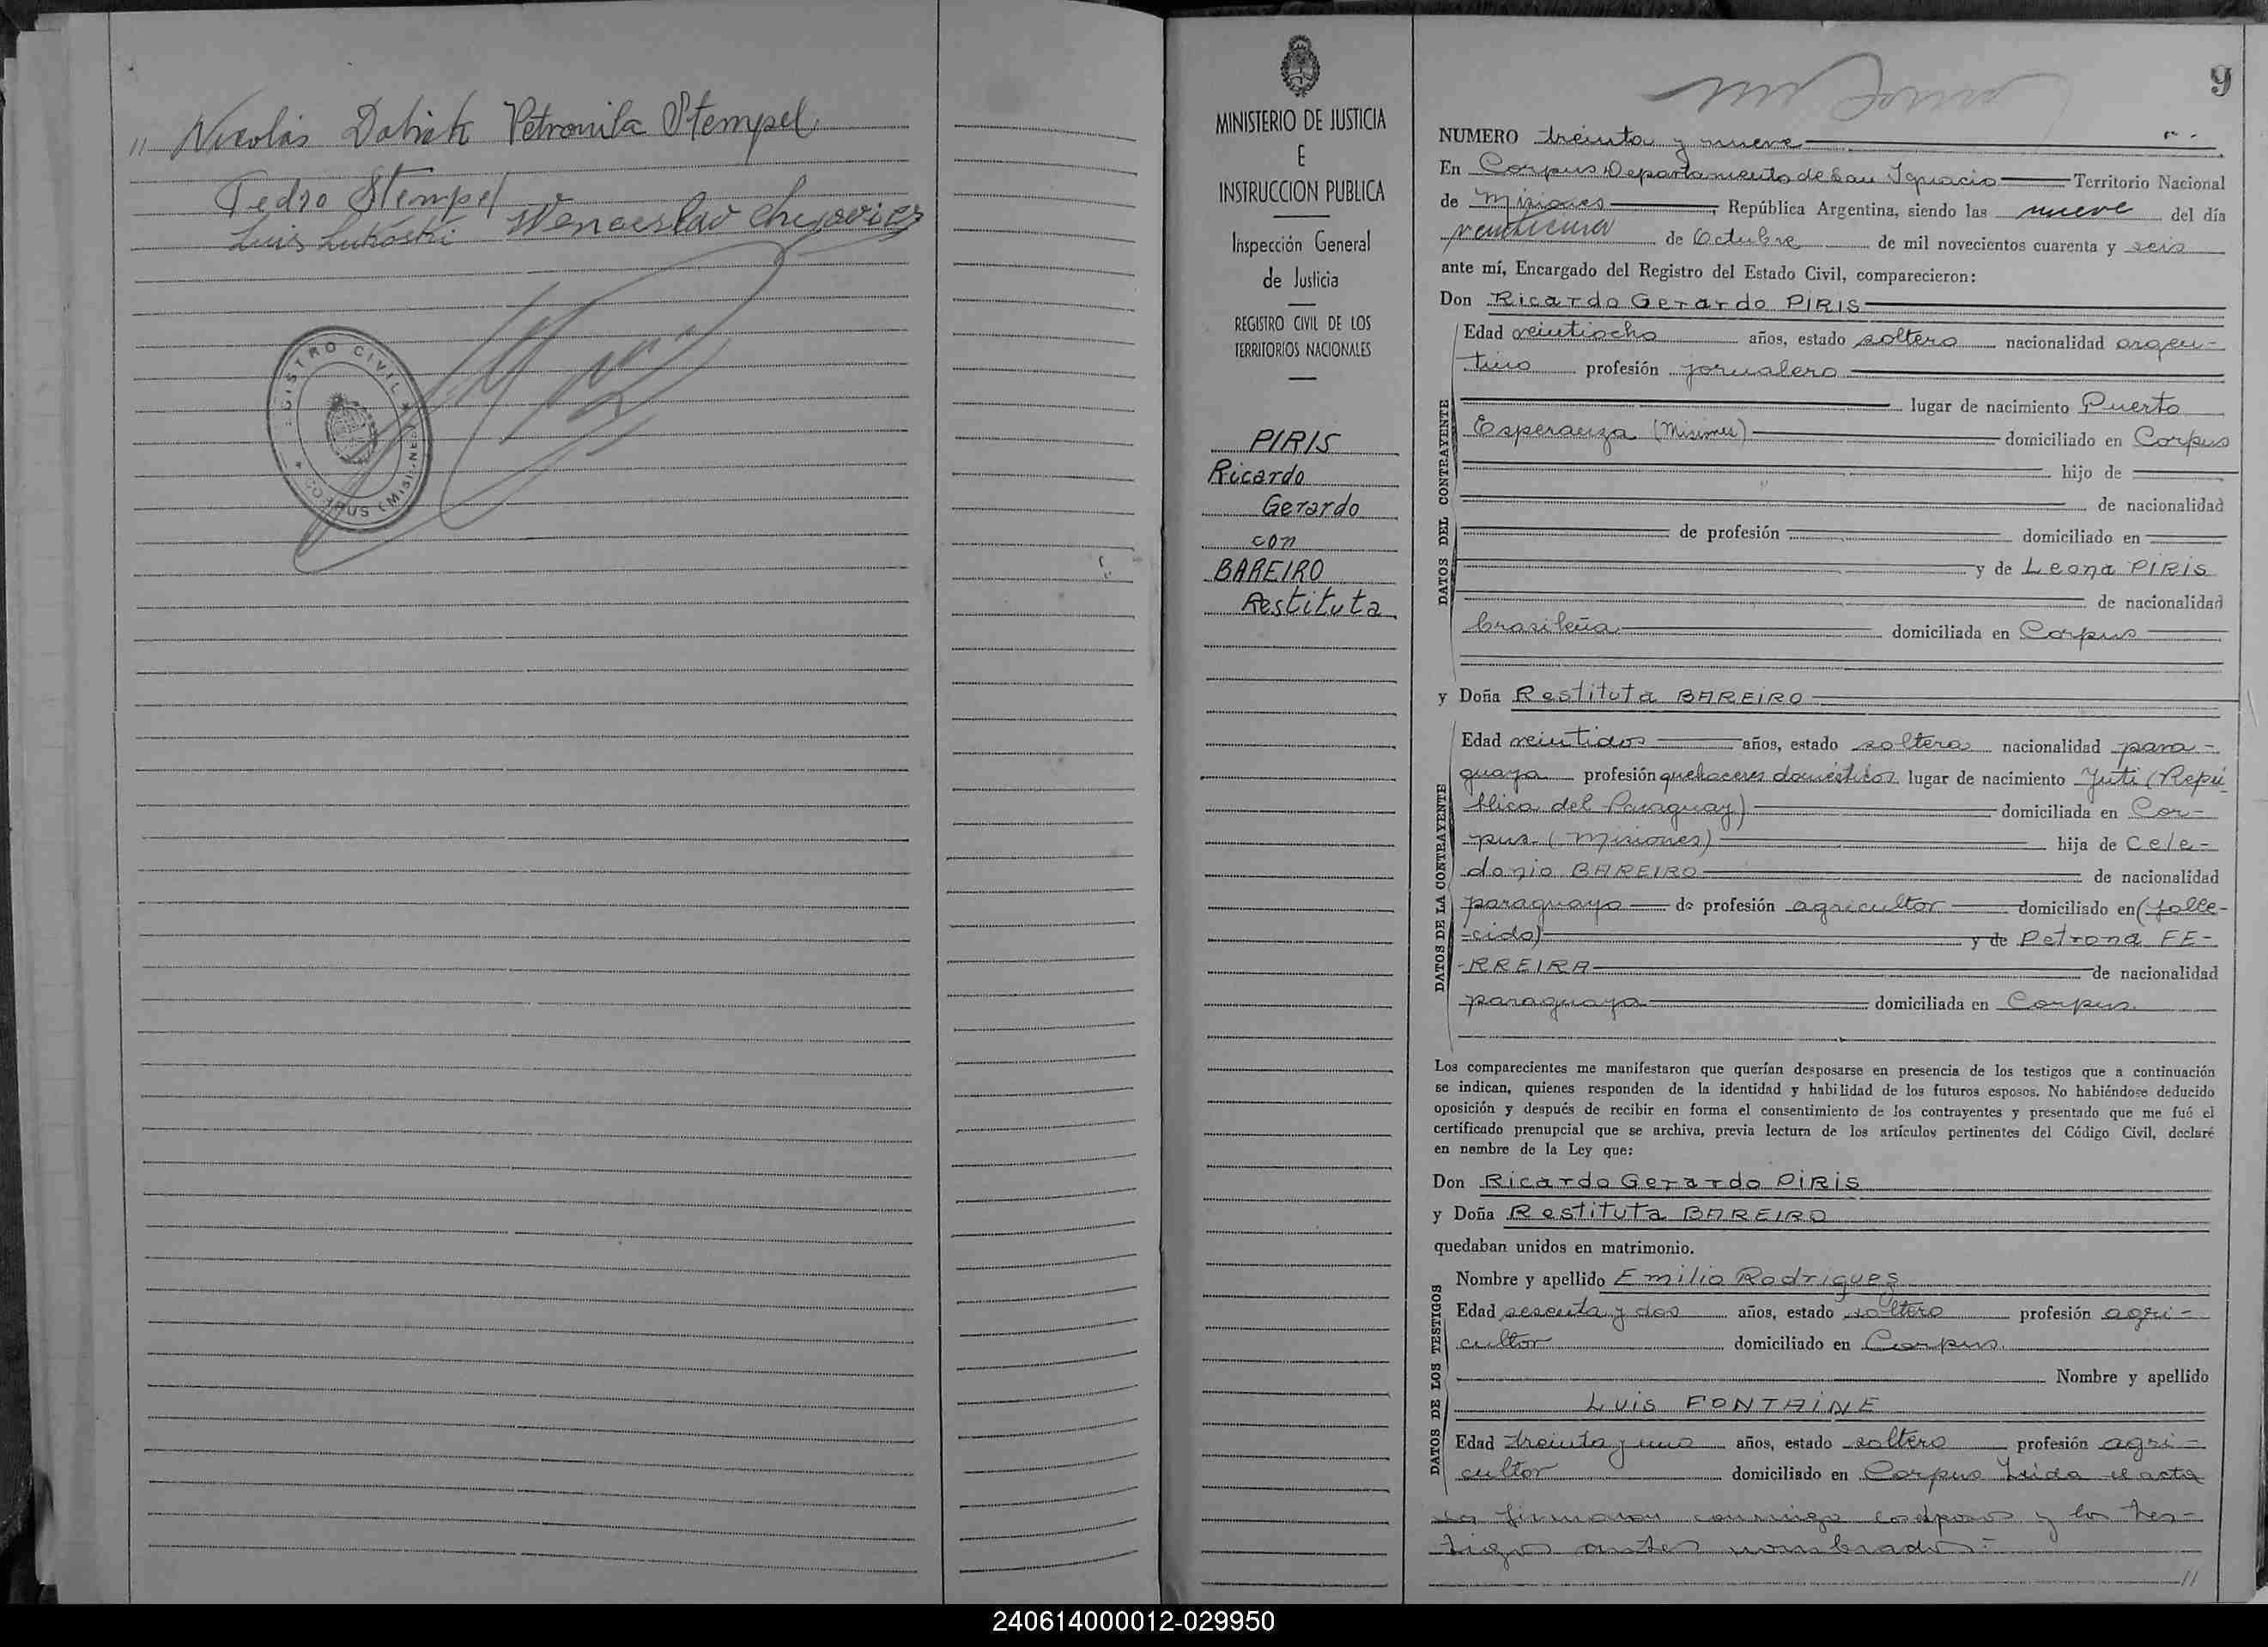 " Nicolás Dabick Petronila Stempel
Pedro Stempel
Luis Lukoski Wenceslao
REGISTRO CIVIL ★ CORPUS (MISIONES) ★
MINISTERIO DE JUSTICIA
E
INSTRUCCION PUBLICA
Inspección General
de Justicia
REGISTRO CIVIL DE LOS
TERRITORIOS NACIONALES
PIRIS
Ricardo
Gerardo
con
BAREIRO
Restituta
9
NUMERO treinta y nueve
En Corpus Departamento de San Ignacio Territorio Nacional
de Misiones, República Argentina, siendo las nueve del día
de Octubre de mil novecientos cuarenta y seis
ante mí, Encargado del Registro del Estado Civil, comparecieron:
Don Ricardo Gerardo PIRIS
DATOS DEL CONTRAYENTE
Edad veintiocho años, estado soltero nacionalidad argen-
tino profesión jornalero
lugar de nacimiento Puerto
Esperanza (Misiones) domiciliado en Corpus
hijo de
de nacionalidad
de profesión domiciliado en
y de Leona PIRIS
de nacionalidad
brasileña domiciliada en Corpus
y Doña Restituta BAREIRO
DATOS DE LA CONTRAYENTE
Edad veintidos años, estado soltera nacionalidad para-
guaya profesión quehaceres domésticos lugar de nacimiento Yuti (Repú
blica del Paraguay) domiciliada en Cor-
pus (Misiones) hija de Cele-
donio BAREIRO de nacionalidad
paraguayo de profesión agricultor domiciliado en (falle-
-cido) y de Petrona FE-
-RREIRA de nacionalidad
paraguaya domiciliada en Corpus.
Los comparecientes me manifestaron que querían desposarse en presencia de los testigos que a continuación
se indican, quienes responden de la identidad y habilidad de los futuros esposos. No habiéndose deducido
oposición y después de recibir en forma el consentimiento de los contrayentes y presentado que me fué el
certificado prenupcial que se archiva, previa lectura de los artículos pertinentes del Código Civil, declaré
en nombre de la Ley que:
Don Ricardo Gerardo PIRIS
y Doña Restituta BAREIRO
quedaban unidos en matrimonio.
DATOS DE LOS TESTIGOS
Nombre y apellido Emilio Rodrigues
Edad sesenta y dos años, estado soltero profesión agri-
cultor domiciliado en Corpus.
Nombre y apellido
Luis FONTAINE
Edad treinta y uno años, estado soltero profesión agri-
cultor domiciliado en Corpus Leida el acta
la firmaron conmigo los esposos y los tes-
tigos antes nombrados.-
//
240614000012-029950